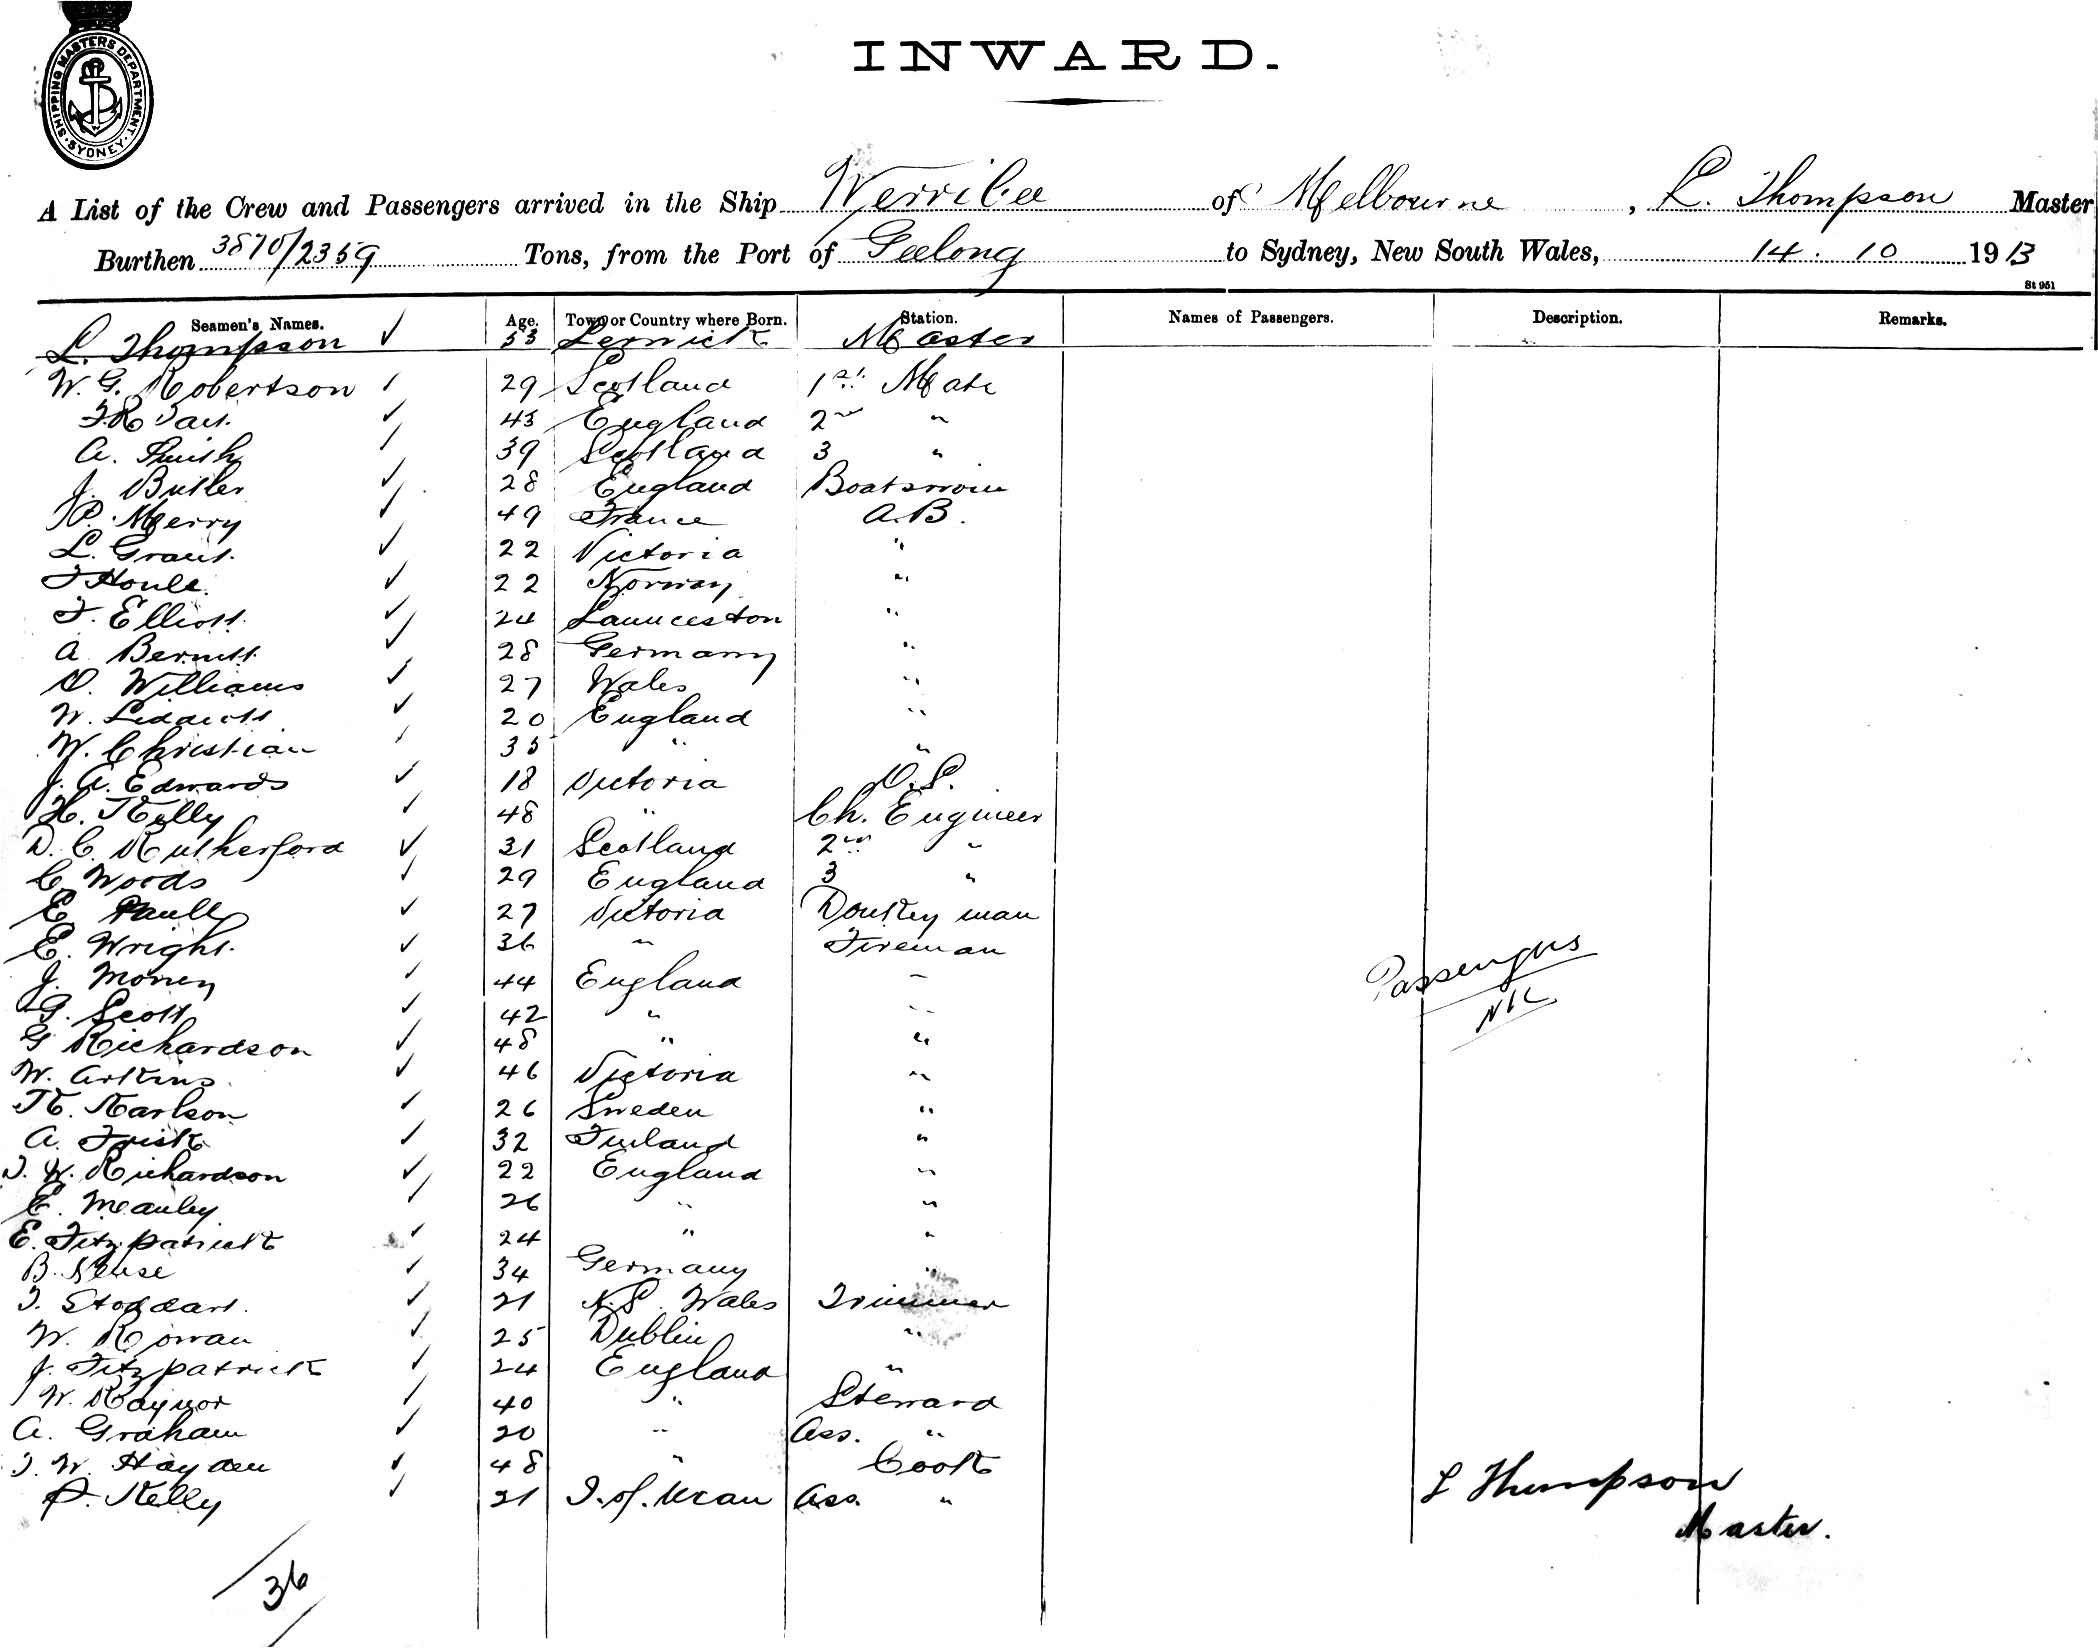 SHIPPING MASTERS DEPARTMENT
SYDNEY
INWARD.
A List of the Crew and Passengers arrived in the Ship Werribee of Melbourne, L. Thompson Master
Burthen 3870/2359 Tons, from the Port of Geelong to Sydney, New South Wales, 14. 10 1913
St 951
Seamen's Names. Age. Town or Country where Born. Station. Names of Passengers. Description. Remarks.
L. Thompson ✓ 53 Lerwick Master
W. G. Robertson 29 Scotland 1st Mate
✓ 43 England 2nd "
A. Smith 39 Scotland 3 "
J. Butler ✓ 28 England Boatswain
P. Merry ✓ 49 France A.B.
L. Grant. ✓ 22 Victoria "
✓ 22 Norway "
F. Elliott ✓ 24 Launceston "
A ✓ 28 Germany "
D. Williams ✓ 27 Wales "
W. ✓ 20 England "
W. Christian 35 " "
J. A. Edwards ✓ 18 Victoria O.S.
H. Kelly ✓ 48 " Ch. Engineer
D. C. Rutherford ✓ 31 Scotland 2nd "
C. Woods ✓ 29 England 3 "
E. Paull ✓ 27 Victoria Donkey man
E. Wright. ✓ 36 " Fireman
J. ✓ 44 England "
G. Scott ✓ 42 " "
G Richardson ✓ 48 " "
W. ✓ 46 Victoria "
K. Karlson ✓ 26 Sweden "
A. Frisk ✓ 32 Finland "
T. W. Richardson ✓ 22 England "
E. Manley ✓ 26 " "
E. Fitzpatrick ✓ 24 " "
B. ✓ 34 Germany "
T. Stoddart. ✓ 21 N.S. Wales Trimmer
W. Rowan ✓ 25 Dublin "
J. Fitzpatrick ✓ 24 England "
W. Raynor 40 " Steward
A. Graham ✓ 20 " Ass. "
T. W. Hayden ✓ 48 " Cook
P. Kelly ✓ 21 I. of. Man Ass. "
Passengers
Nil
L Thompson
Master.
36